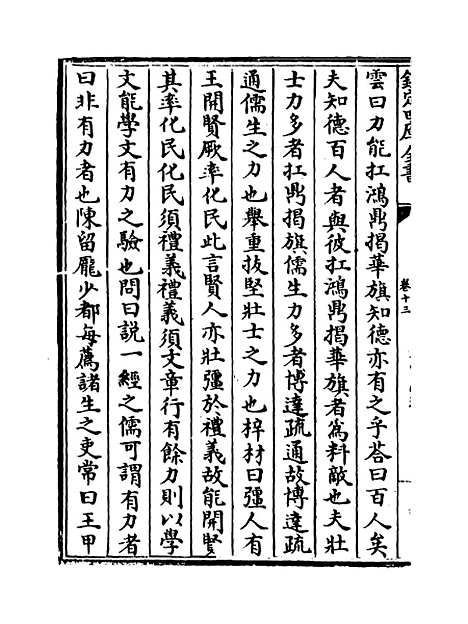 欽定四庫全書
卷十三
雲曰力能扛鴻鼎揭華旗知德亦有之乎荅曰百人矣
夫知德百人者與彼扛鴻鼎揭華旗者為料敵也夫壯
士力多者扛鼎揭旗儒生力多者博達疏通故博達疏
通儒生之力也舉重拔堅壯士之力也梓材曰彊人有
王開賢厥率化民此言賢人亦壯彊於禮義故能開賢
其率化民化民須禮義禮義須文章行有餘力則以學
文能學文有力之驗也問曰説一經之儒可謂有力者
曰非有力者也陳留龎少都每薦諸生之吏常曰王甲